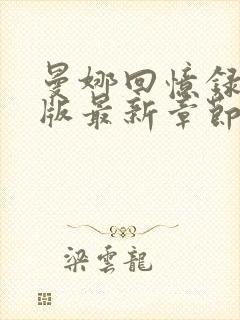 曼娜回憶録
版最新章節
梁雲龍